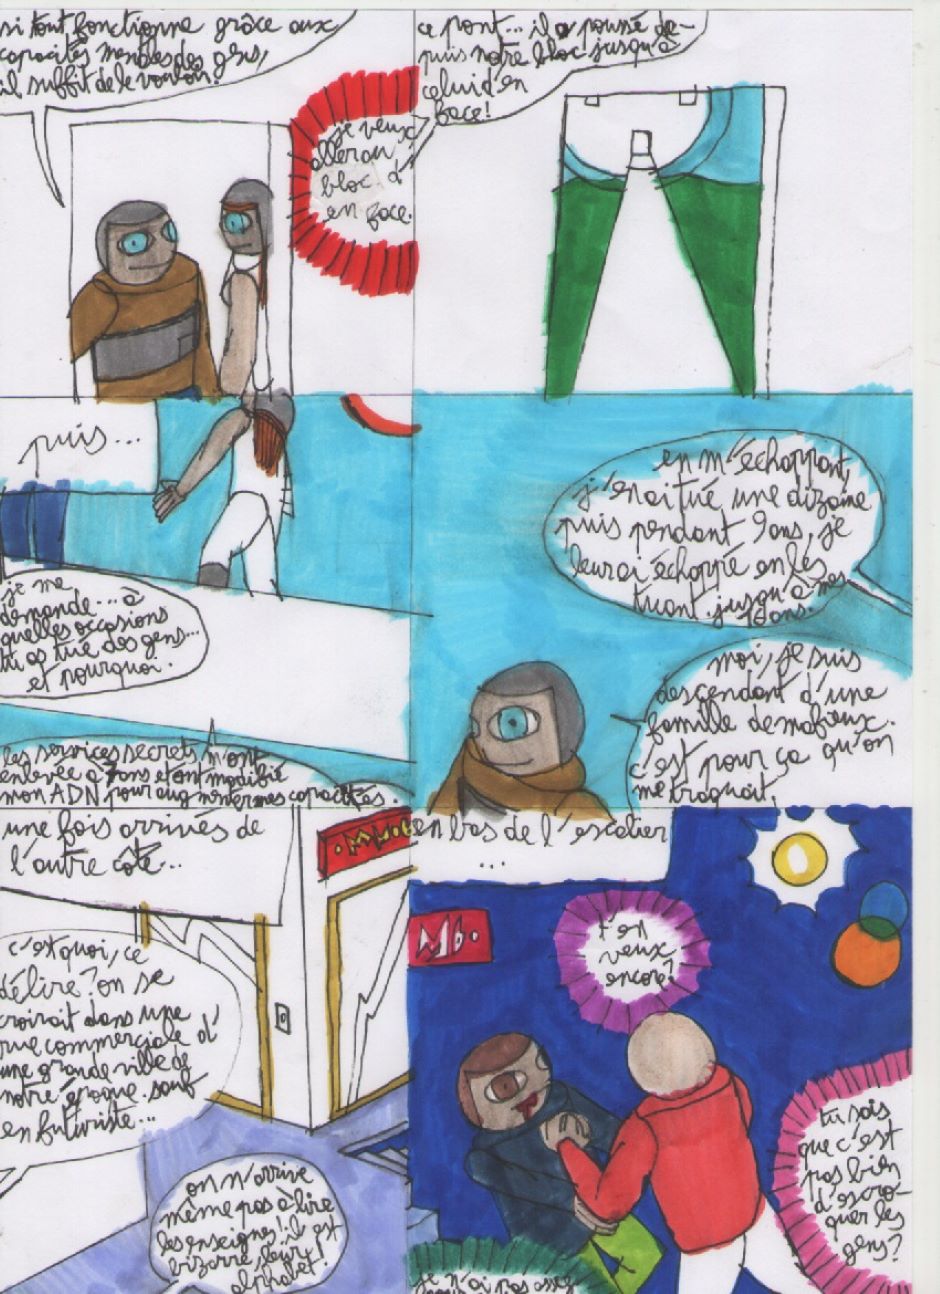 si tout fonctionne grâce aux
capacités mentales des gens,
il suffit de le vouloir!
je veux
aller au
bloc d'
en face.
ce pont... il a poussé de-
puis notre bloc jusqu'à
celui d'en
face!
puis...
je me
demande... à
quelles occasions
tu as tué des gens...
et pourquoi.
les services secrets m'ont
enlevée à 7 ans et ont modifié
mon ADN pour augmenter mes capacités.
en m'échappant,
j'en ai tué une dizaine
puis pendant 9 ans, je
leur ai échappé en les
tuant jusqu'à mes
16 ans.
moi, je suis
descendant d'une
famille de mafieux.
c'est pour ça qu'on
me traquait.
une fois arrivés de
l'autre côté...
c'est quoi, ce
délire? on se
croirait dans une
rue commerciale d'
une grande ville de
notre époque sauf
en futuriste...
on n'arrive
même pas à lire
les enseignes! il est
bizarre, leur
alphabet!
en bas de l'escalier
...
t'en
veux
encore?
tu sais
que c'est
pas bien
d'escro-
quer les
gens?
je n'ai pas assez